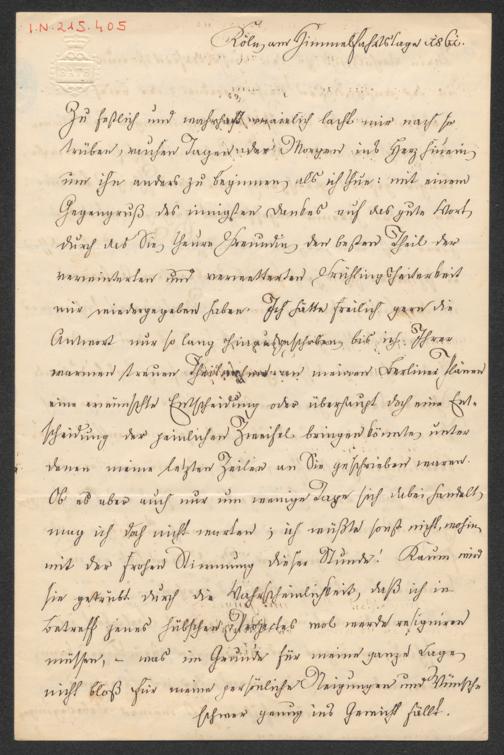 I.N. 215.405
BATH
Köln, am Himmelfahrtstage 1862.
Zu festlich und wahrhaft maienlich lacht mir nach so
trüben, rauhen Tagen der Morgen ins Herz hinein,
um ihn anders zu beginnen, als ich thue: mit einem
Gegengruß des innigsten Dankes auf das gute Wort,
durch das Sie, theure Freundin, den besten Theil der
verwinterten und verwetterten Frühlingsheiterkeit
mir wiedergegeben haben. Ich hätte freilich gern die
Antwort nur so lang hinausgeschoben, bis ich Ihrer
warmen treuen Theilnahme an meinen Berliner Plänen
eine erwünschte Entscheidung oder überhaupt doch eine Ent-
scheidung der peinlichen Zweifel bringen könnte, unter
denen meine letzten Zeilen an Sie geschrieben waren.
Ob es aber auch nur um wenige Tage sich dabei handelt,
mag ich doch nicht warten; ich wüßte sonst nicht, wohin
mit der frohen Stimmung dieser Stunde! Kaum wird
sie getrübt durch die Wahrscheinlichkeit, daß ich in
Betreff jenes hübschen Projectes wol werde resigniren
müssen, – was im Grunde für meine ganze Lage,
nicht bloß für meine persönliche Neigungen und Wünsche
schwer genug ins Gewicht fällt.